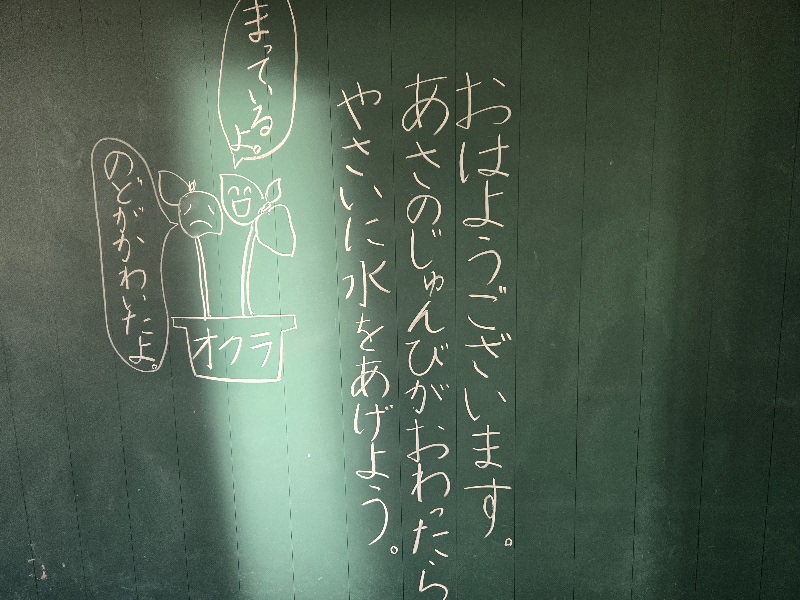 おはようございます。
あさのじゅんびがおわったら
やさいに水をあげよう。
まっているよ。
のどがかわいたよ。
オクラ